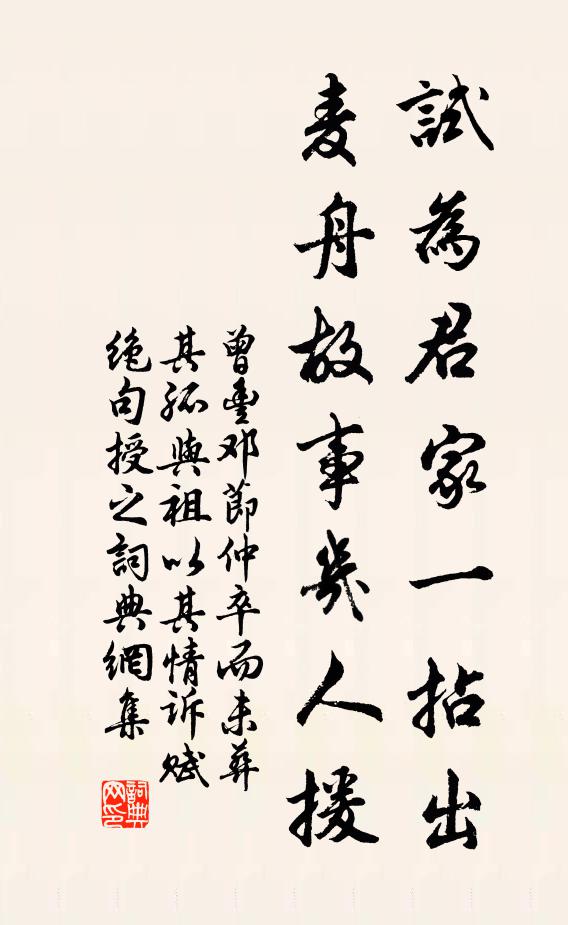 試為君家一拈出
麦舟故事幾人援
曾豊邓節仲卒而未葬
其孤與祖以其情诉赋
绝句授之詞典網集
詞典网印